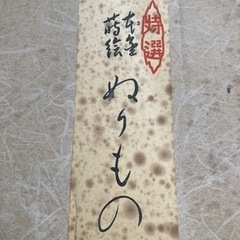 特選
本金
蒔絵
ぬりもの